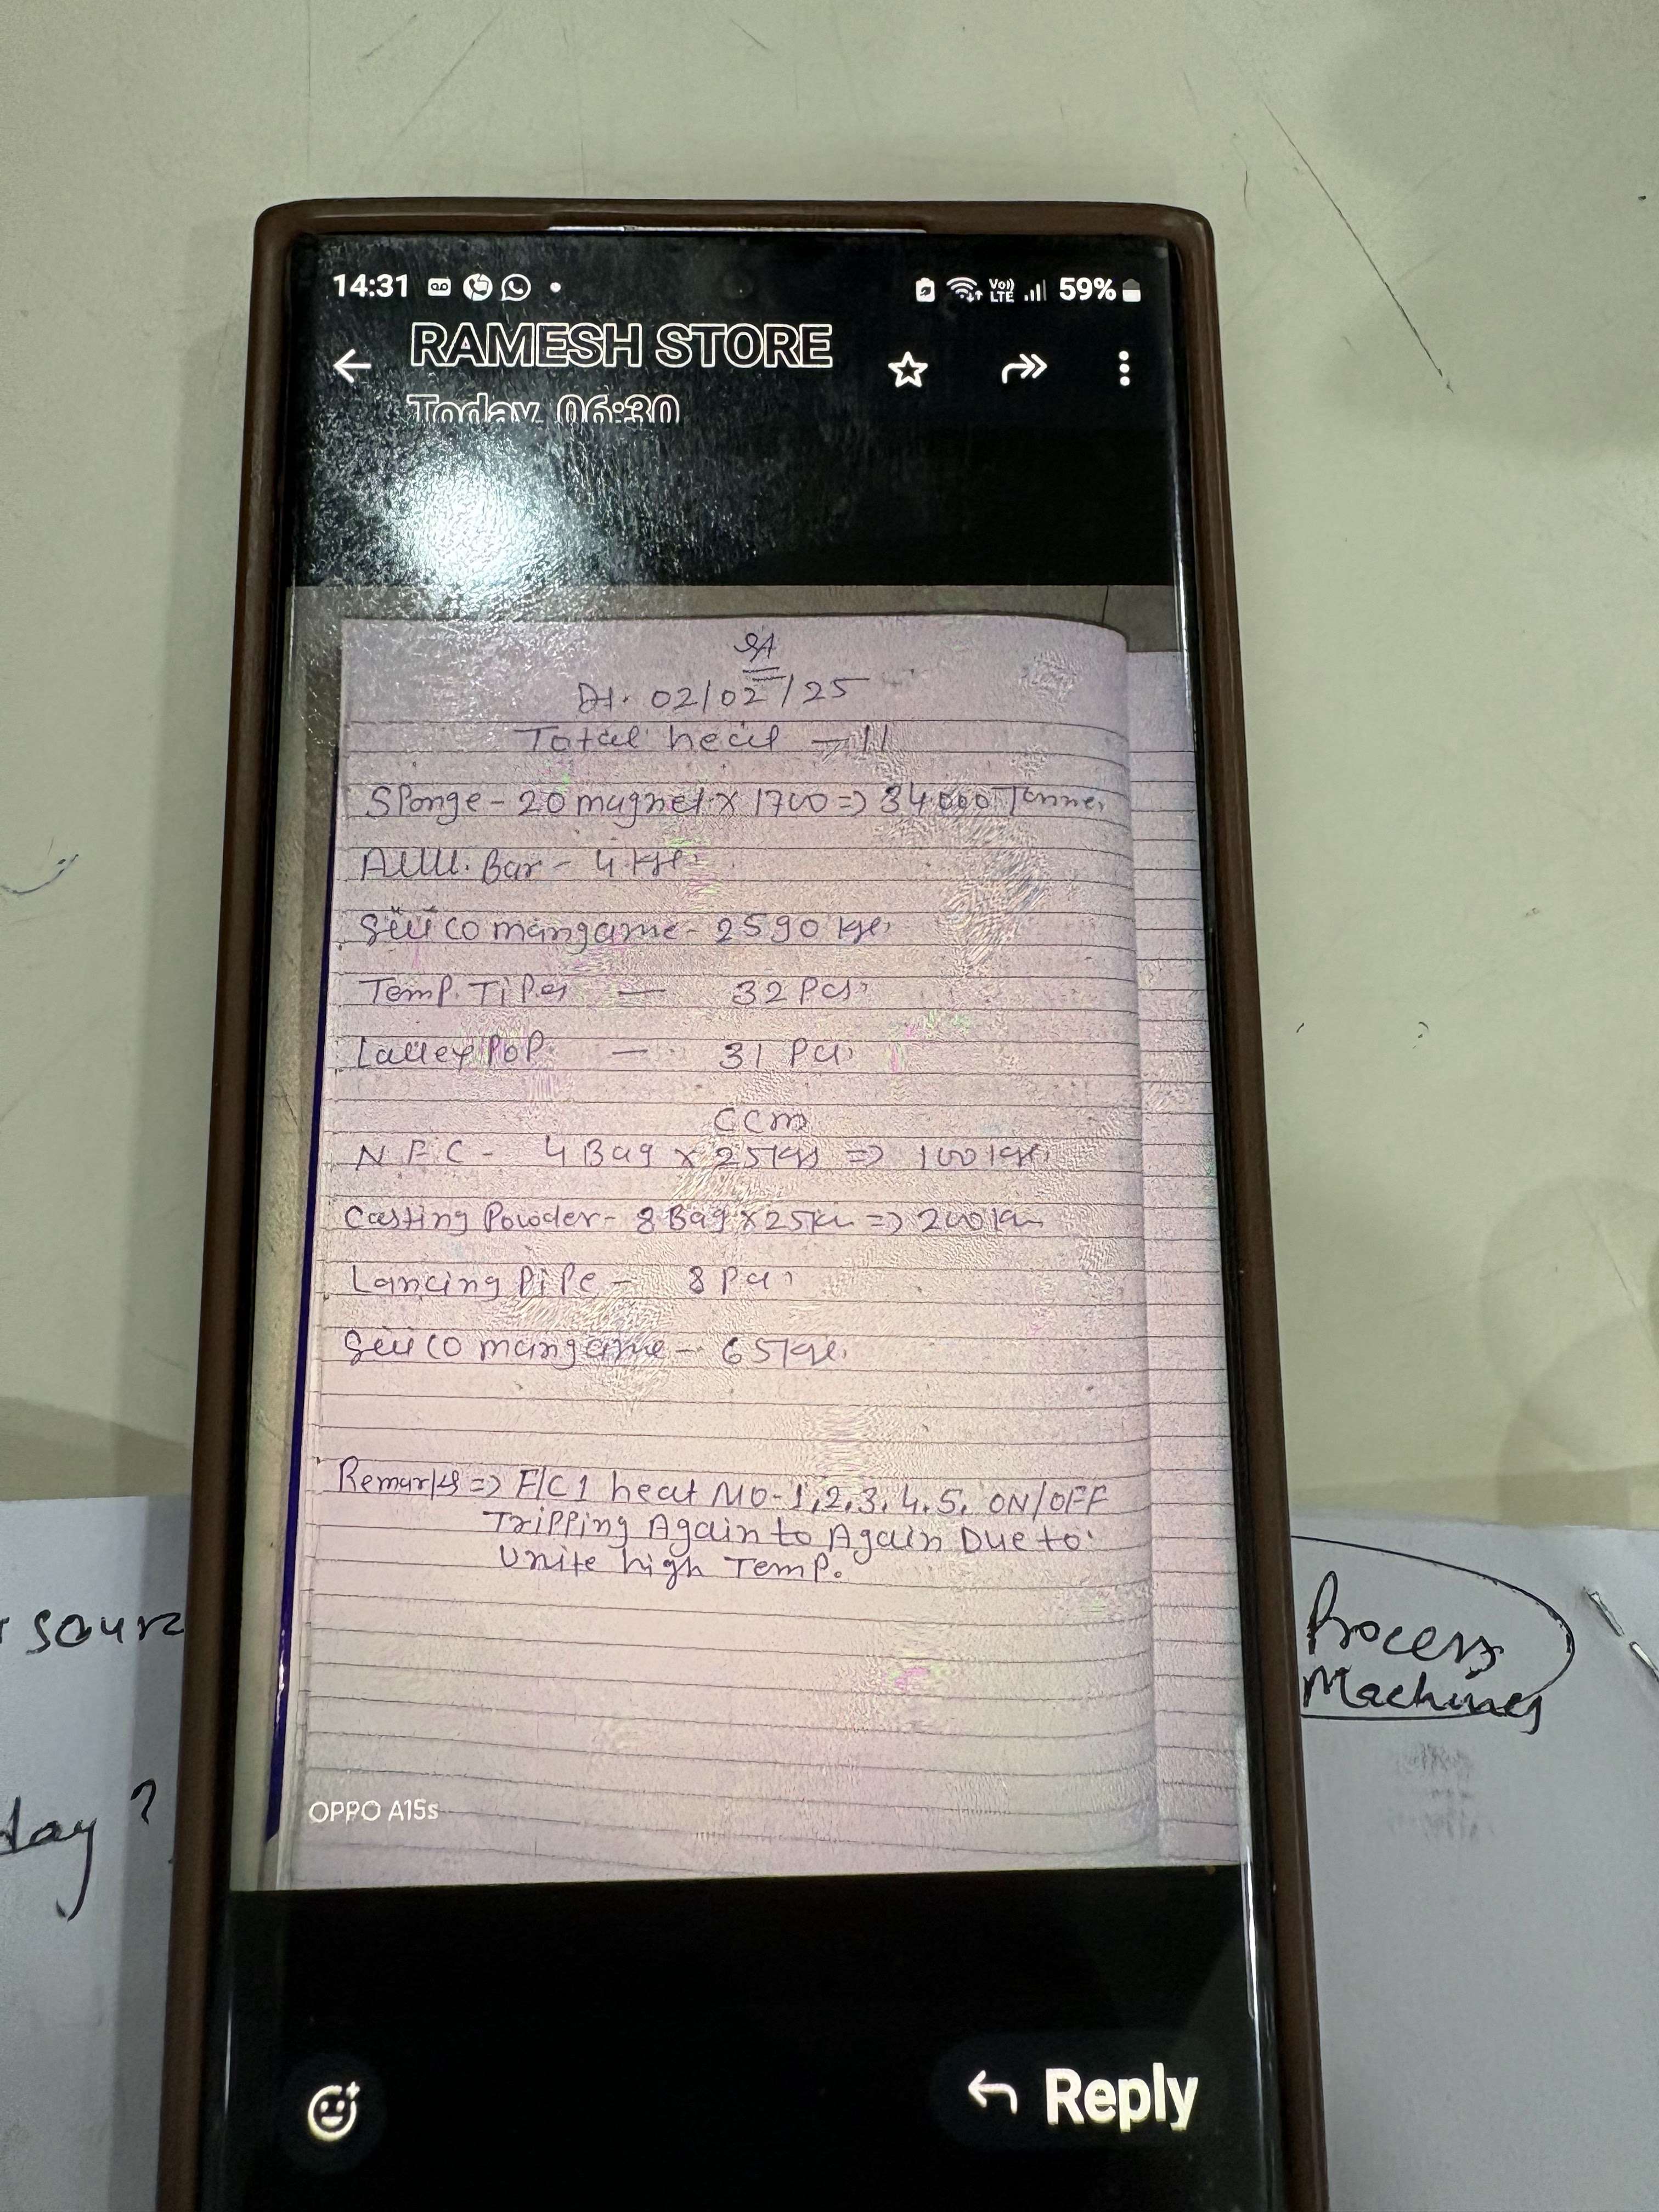 14:31
Vo)) LTE 59%
RAMESH STORE
Today, 06:30
Dt. 02/02/25
Total heat - 11
Sponge - 20 magnet x 1700 => 34.000 Tonnes
Allu. Bar - 4 kgs.
Silico manganie - 2590 kgs.
Temp. Tipes — 32 Pcs.
Lalley PoP. — 31 Pcs.
CCM
N.F.C - 4 Bag x 25 kgs => 100 kgs.
Casting Powder - 8 Bag x 25 kgs => 200 kgs
Lancing Pipe - 8 Pcs.
Silico manganie - 65 kgs.
Remarks => F/C 1 heat NO - 1,2,3,4,5, ON/OFF
Tripping Again to Again Due to
Unite high Temp.
OPPO A15s
Process
Machines
day ?
Reply